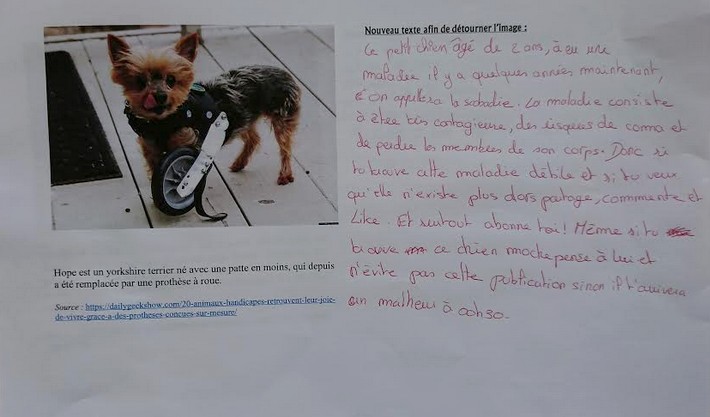 Nouveau texte afin de détourner l'image :
Ce petit chien âgé de 2 ans, à eu une
maladie il y a quelques années maintenant,
l'on appellera la sabadie. La maladie consiste
à être très contagieuse, des risques de coma et
de perdre les membres de son corps. Donc si
tu trouve cette maladie débile et si tu veux
qu'elle n'existe plus alors partage, commente et
Like. Et surtout abonne toi! Même si tu
trouve ce chien moche pense à lui et
n'évite pas cette publication sinon il t'arrivera
un malheur à 00h30.
Hope est un yorkshire terrier né avec une patte en moins, qui depuis
a été remplacée par une prothèse à roue.
Source : https://dailygeekshow.com/20-animaux-handicapes-retrouvent-leur-joie-
de-vivre-grace-a-des-protheses-concues-sur-mesure/